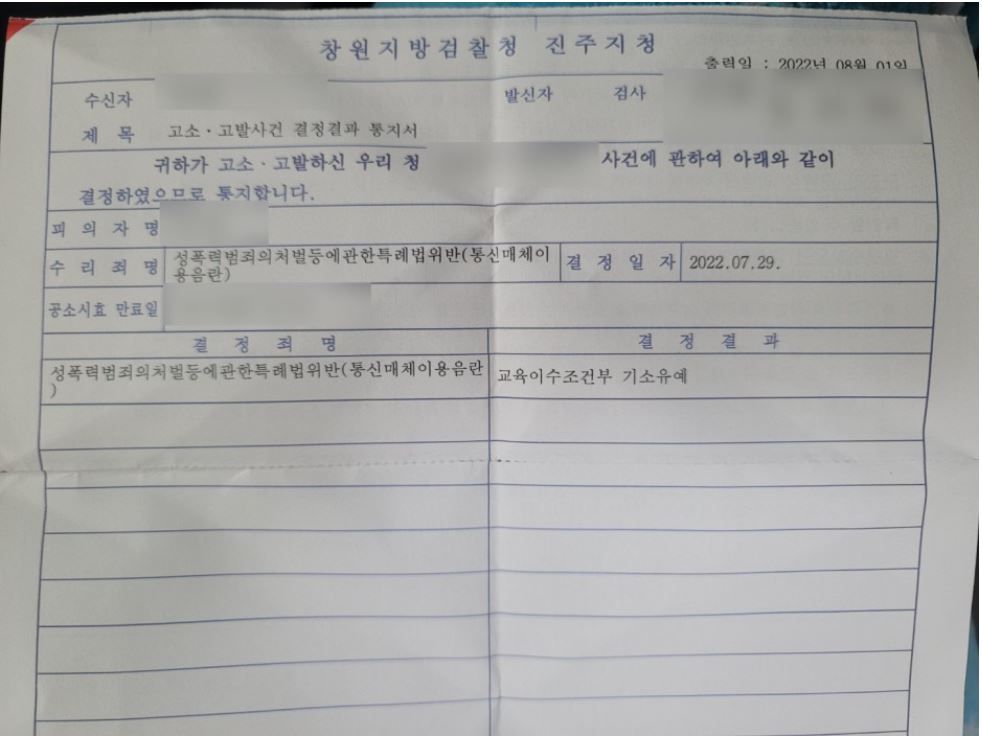 창원지방검찰청 진주지청
출력일 : 2022년 08월 01일
수신자 발신자 검사
제 목 고소·고발사건 결정결과 통지서
귀하가 고소·고발하신 우리 청 사건에 관하여 아래와 같이
결정하였으므로 통지합니다.
피 의 자 명
수 리 죄 명 성폭력범죄의처벌등에관한특례법위반(통신매체이
용음란) 결 정 일 자 2022.07.29.
공소시효 만료일
결 정 죄 명 결 정 결 과
성폭력범죄의처벌등에관한특례법위반(통신매체이용음란
) 교육이수조건부 기소유예